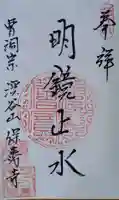 奉拝
明鏡止水
曹洞宗 渓谷山 保寿寺